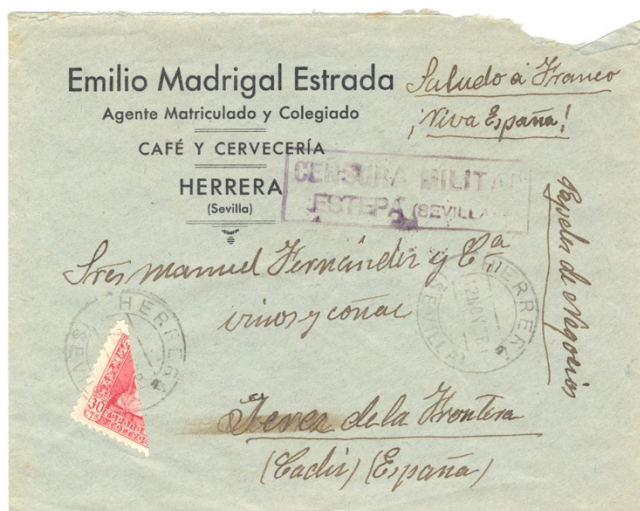 Emilio Madrigal Estrada
Agente Matriculado y Colegiado
CAFÉ Y CERVECERÍA
HERRERA
(Sevilla)
Saludo á Franco
¡Viva España!
CENSURA MILITAR
ESTEPA (SEVILLA)
Papeles de Negocios
Sres Manuel Fernández y Cª
vinos y coñac
HERRERA
SEVILLA
HERRERA
SEVILLA
30
Jerez de la Frontera
(Cadiz) (España)